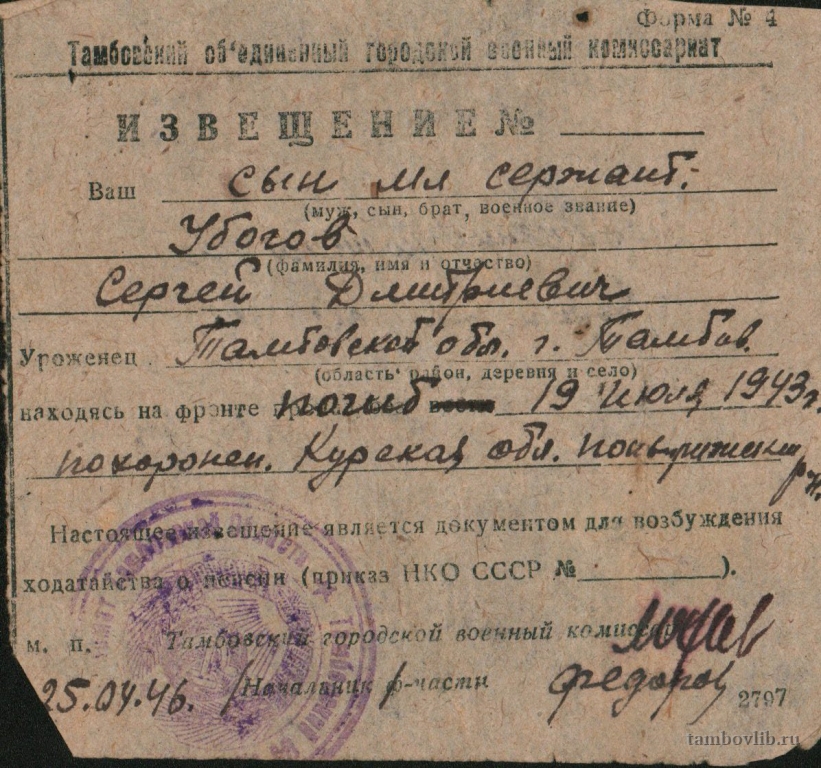 Форма № 4
Тамбовский об'единенный городской военный комиссариат
ИЗВЕЩЕНИЕ №
Ваш сын мл сержант.
(муж, сын, брат, военное звание)
Убогов
(фамилия, имя и отчество)
Сергей Дмитриевич
Уроженец Тамбовской обл. г. Тамбов.
(область, район, деревня и село)
находясь на фронте погиб 19 июля 1943 г.
похоронен. Курская обл. р-н.
Настоящее извещение является документом для возбуждения
ходатайства о пенсии (приказ НКО СССР № ).
м. п. Тамбовский городской военный комиссар
25.04.46. /Начальник ф-части/ Федоров
2797
tambovlib.ru